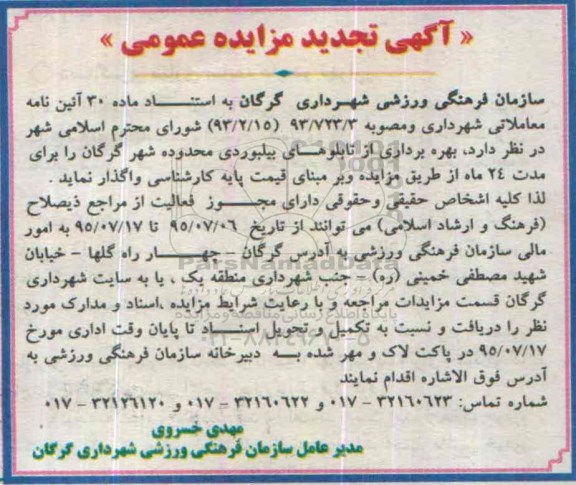 « آگهی تجدید مزایده عمومی »
سازمان فرهنگی ورزشی شهرداری گرگان به استناد ماده ۳۰ آئین نامه
معاملاتی شهرداری ومصوبه ۹۳/۷۲۳/۳ (۹۳/۲/۱۵) شورای محترم اسلامی شهر
در نظر دارد، بهره برداری از تابلوهای بیلبوردی محدوده شهر گرگان را برای
مدت ۲۴ ماه از طریق مزایده وبر مبنای قیمت پایه کارشناسی واگذار نماید .
لذا کلیه اشخاص حقیقی وحقوقی دارای مجوز فعالیت از مراجع ذیصلاح
(فرهنگ و ارشاد اسلامی) می توانند از تاریخ ۹۵/۰۷/۰۶ تا ۹۵/۰۷/۱۷ به امور
مالی سازمان فرهنگی ورزشی به آدرس گرگان - چهار راه گلها - خیابان
شهید مصطفی خمینی (ره) - جنب شهرداری منطقه یک ، یا به سایت شهرداری
گرگان قسمت مزایدات مراجعه و با رعایت شرایط مزایده ،اسناد و مدارک مورد
نظر را دریافت و نسبت به تکمیل و تحویل اسناد تا پایان وقت اداری مورخ
۹۵/۰۷/۱۷ در پاکت لاک و مهر شده به دبیرخانه سازمان فرهنگی ورزشی به
آدرس فوق الاشاره اقدام نمایند
شماره تماس: ۳۲۱۶۰۶۲۳ - ۰۱۷ و ۳۲۱۶۰۶۲۲ - ۰۱۷ و ۳۲۱۲۶۱۲۰ - ۰۱۷
مهدی خسروی
مدیر عامل سازمان فرهنگی ورزشی شهرداری گرگان
ParsNamadData
پایگاه اطلاع رسانی مناقصه و مزایده